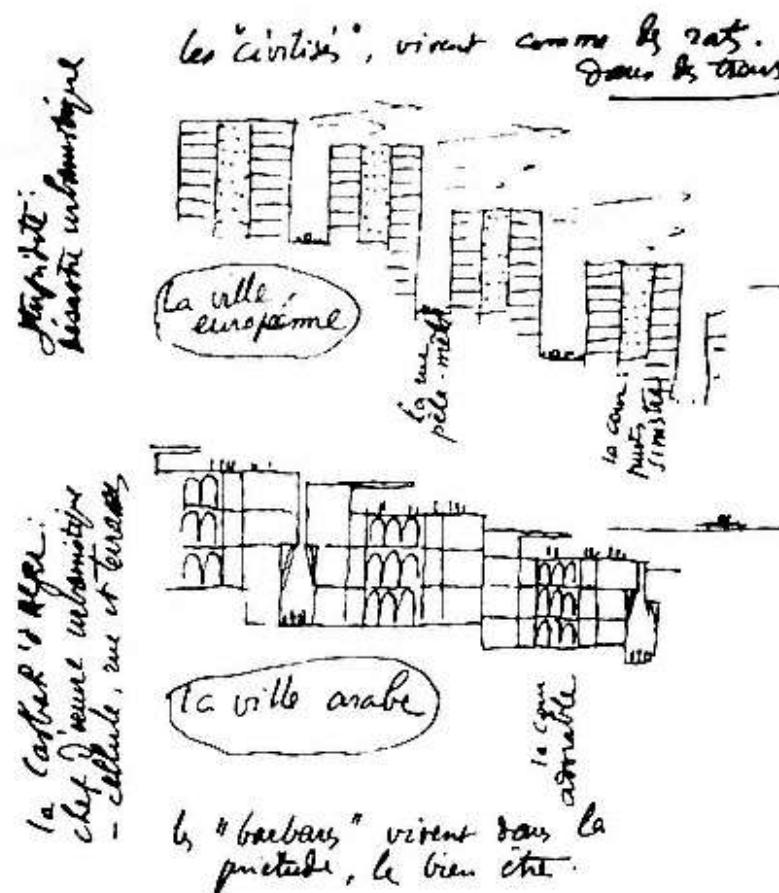 les "civilisés", vivent comme des rats.
dans des trous
stupidité :
désastre urbanistique
la ville
européenne
la rue
pêle-mêle
la cour :
puits
sinistre
la Casbah d'Alger :
chef d'œuvre urbanistique
- cellule, rue et terrasses
la ville arabe
la cour
adorable
les "barbares" vivent dans la
quiétude, le bien être.